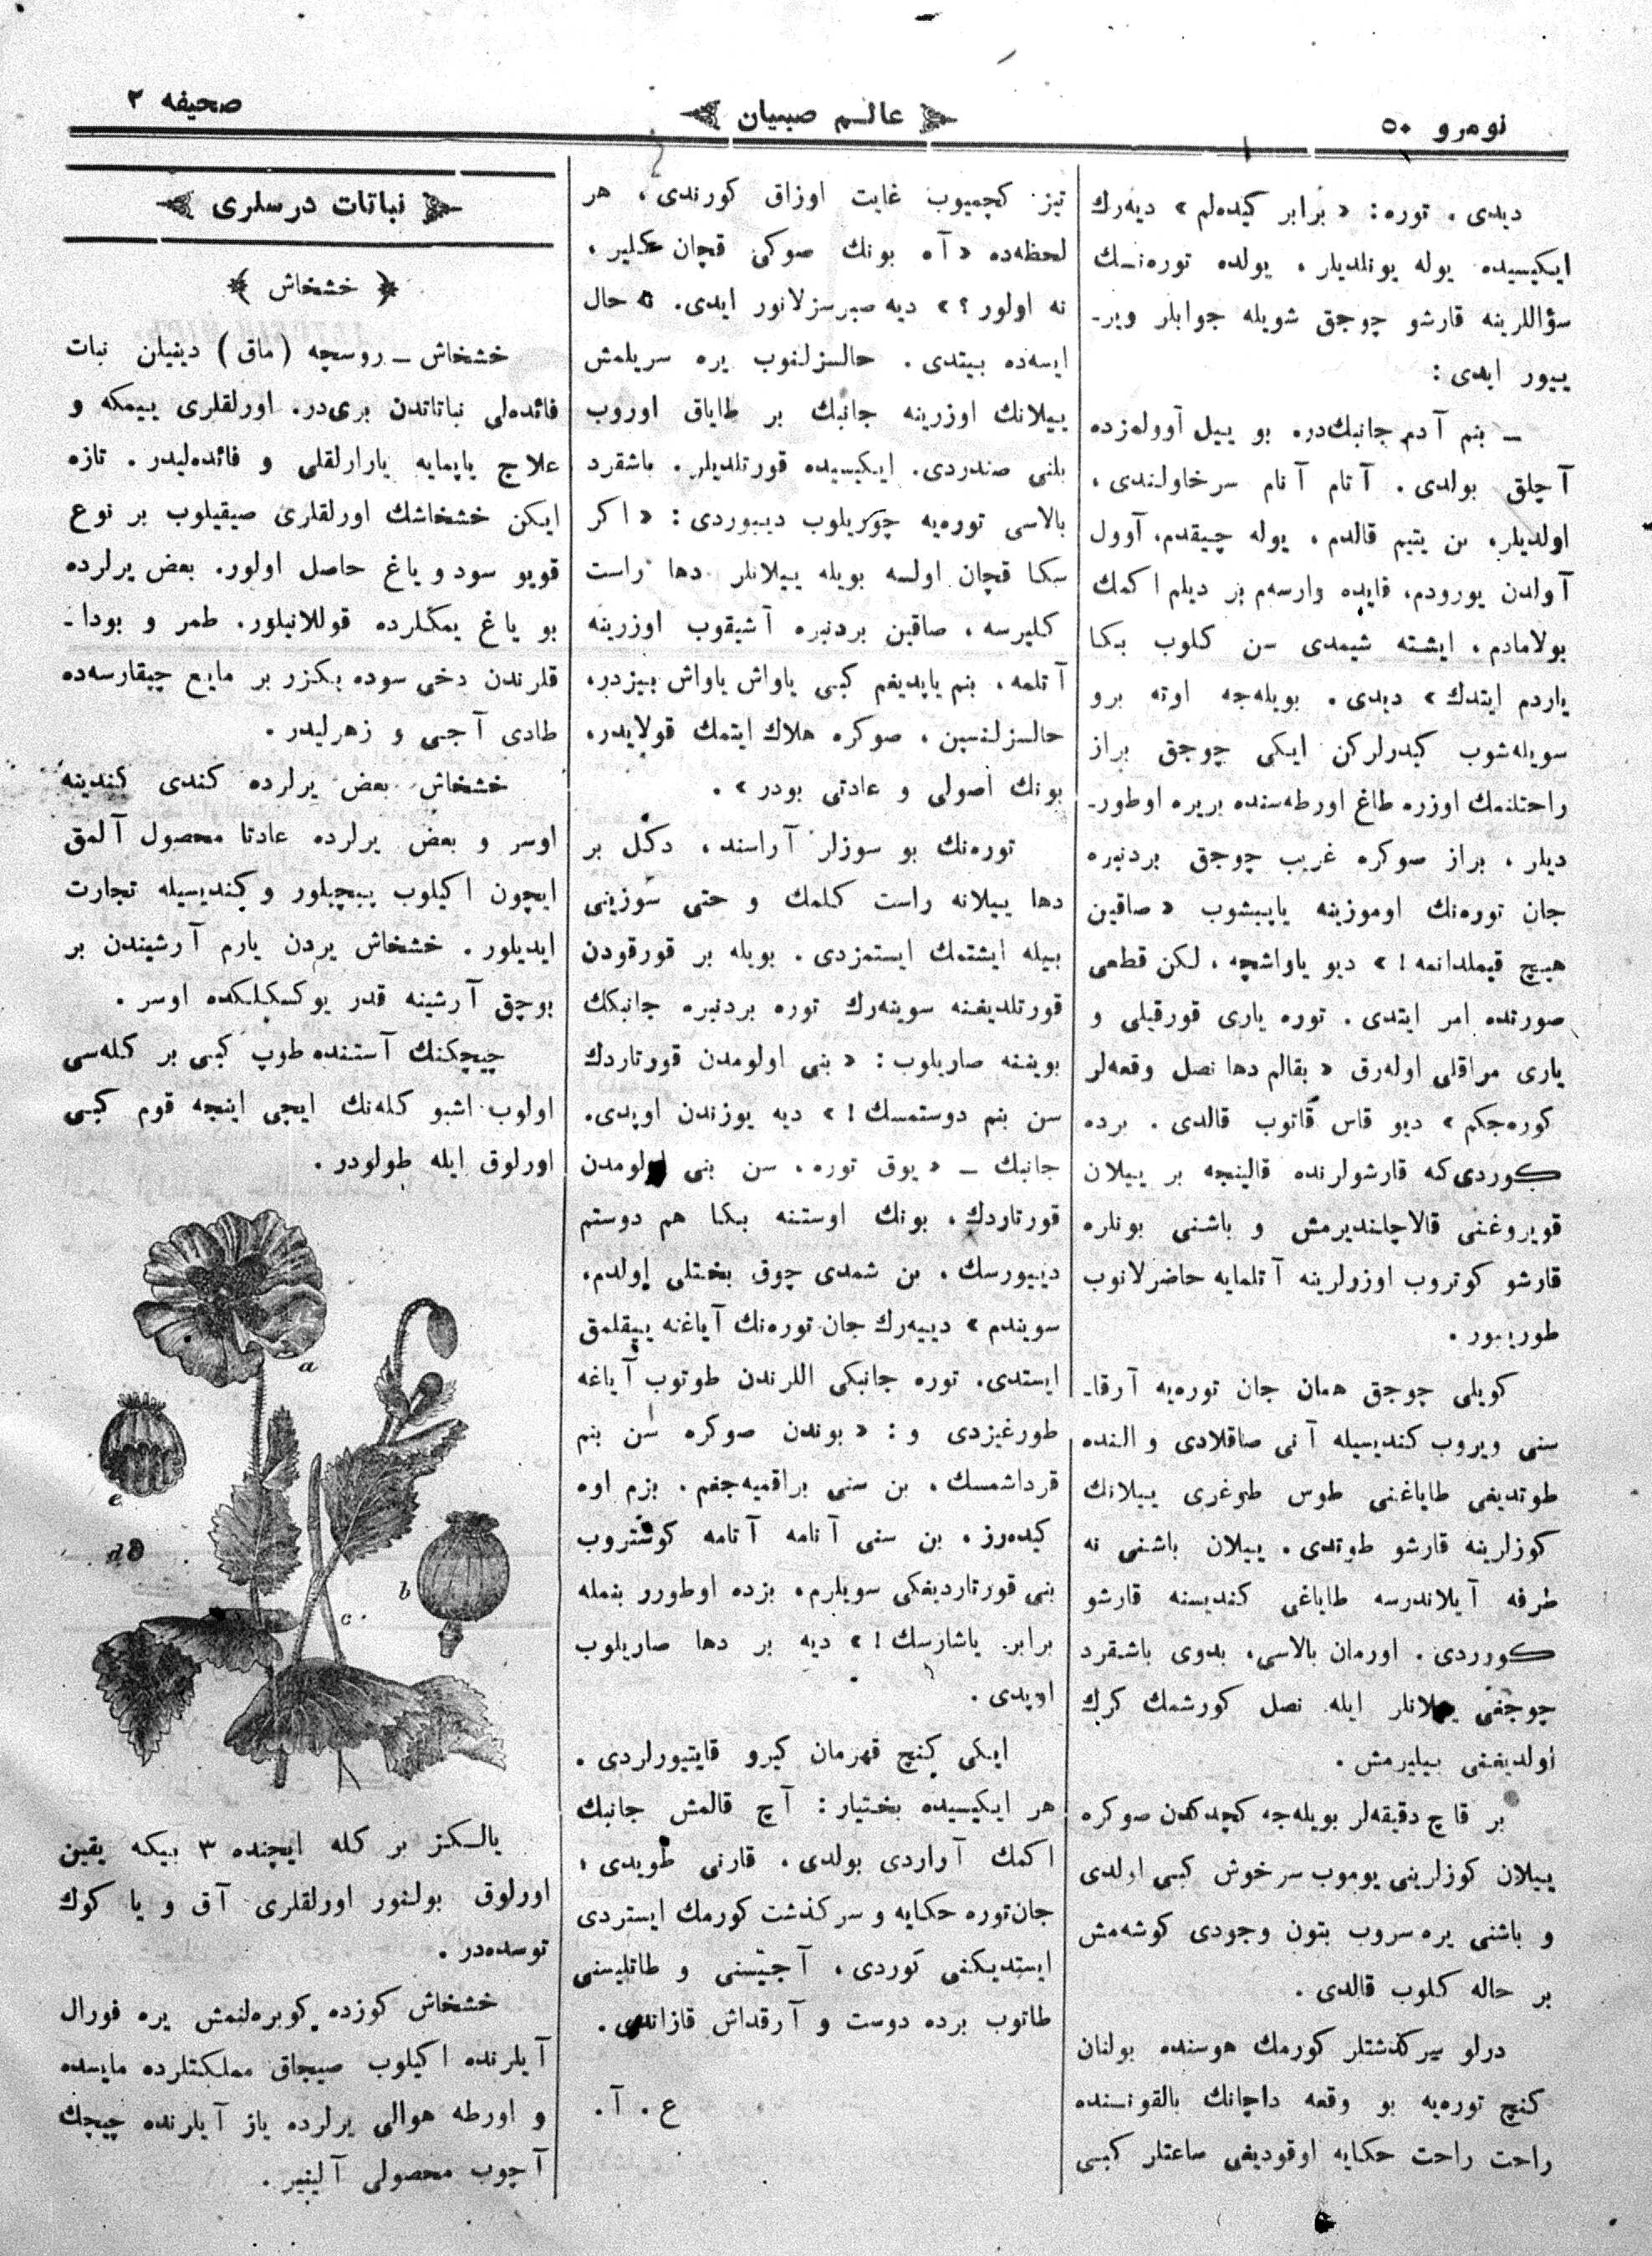 نومرو ۵۰
عالم صبيان
صحيفه ۲
ديدى . توره : « برابر كيده‌لم » ديه‌رك
ايكيسيده يوله يونلديلر ، يولده توره‌نــك
سؤاللرينه قارشو چوجق شويله جوابلر وير-
ييور ايدى :
– بنم آدم جانبك‌در، بو ييل آوولمزده
آچلق بولدى . آتام آنام سرخاولندى ،
اولديلر، بن يتيم قالدم ، يوله چيقدم، آوول
آولدن يورودم، قايده وارسه‌م بر ديلم اكمك
بولامادم ، ايشته شيمدى سن كلوب بكا
ياردم ايتدك » ديدى . بويله‌جه اوته برو
سويله‌شوب كيدرلركن ايكى چوجق براز
راحتلنمك اوزره طاغ اورطه‌سنده بريره اوطور-
ديلر ، براز صوكره غريب چوجق بردنبره
جان توره‌نك اوموزينه ياپيشوب « صاقين
هيچ قيملدانمه ! » ديو ياواشچه ، لكن قطعى
صورتده امر ايتدى . توره يارى قورقيلى و
يارى مراقلى اوله‌رق « بقالم دها نصل وقعه‌لر
كوره‌جكم » ديو قاس قاتوب قالدى . برده
كوردى كه قارشولرنده قالينچه بر ييلان
قويروغنى قالاچلنديرمش و باشنى بونلره
قارشو كوتروب اوزرلرينه آتلمايه حاضرلانوب
طورييور .
كويلى چوجق همان جان توره‌يه آرقا-
سنى ويروب كنديسيله آنى صاقلادى و النده
طوتديغى طاياغنى طوس طوغرى ييلانك
كوزلرينه قارشو طوتدى . ييلان باشنى نه
طرفه آيلاندرسه طاياغى كنديسنه قارشو
كورردى . اورمان بالاسى، بدوى باشقرد
چوجغى ييلانلر ايله نصل كورشمك كرك
اولديغنى بيليرمش .
بر قاچ دقيقه‌لر بويله‌جه كچدكدن صوكره
ييلان كوزلرينى يوموب سرخوش كبى اولدى
و باشنى يره سروب بتون وجودى كوشه‌مش
بر حاله كلوب قالدى .
درلو سركذشتلر كورمك هوسنده بولنان
كنچ توره‌يه بو وقعه داچانك بالقونـنده
راحت راحت حكايه اوقوديغى ساعتلر كبى
تيز كچميوب غايت اوزاق كورندى ، هر
لحظه‌ده « آه بونك صوكى قچان كلير ،
نه اولور ؟ » ديه صبرسزلانور ايدى. نه حال
ايسه‌ده بيتدى . حالسزلنوب يره سريلمش
ييلانك اوزرينه جانبك بر طاياق اوروب
بلنى صندردى. ايكيسيده قورتلديلر. باشقرد
بالاسى توره‌يه چوريلوب ديبوردى : « اكر
سكا قچان اولسه بويله ييلانلر دها راست
كليرسه ، صاقين بردنبره آشيقوب اوزرينه
آتلمه ، بنم ياپديغم كبى ياواش ياواش بيزدر،
حالسزلنسين ، صوكره هلاك ايتمك قولايدر،
بونك اصولى و عادتى بودر » .
توره‌نك بو سوزلر آراسند، دكل بر
دها ييلانه راست كلمك و حتى سوزينى
بيله ايشتمك ايستمزدى . بويله بر قورقودن
قورتلديغنه سوينه‌رك توره بردنبره جانبكك
بوينـنه صاريلوب : « بنى اولومدن قورتاردك
سن بنم دوستمسك ! » ديه يوزندن اوپدى.
جانبك – « يوق توره ، سن بنى اولومدن
قورتاردك ، بونك اوستنه بكا هم دوستم
دييورسك ، بن شمدى چوق بختلى اولدم،
سويندم » دييه‌رك جان توره‌نك آياغنه ييقلمق
ايستدى. توره جانبكى اللرندن طوتوب آياغه
طورغيزدى و : « بوندن صوكره سن بنم
قرداشمسك ، بن سنى براقميه‌جغم . بزم اوه
كيده‌رز ، بن سنى آنامه آتامه كوشتروب
بنى قورتارديغكى سويلرم، بزده اوطورر بنمله
برابر ياشارسك ! » ديه بر دها صاريلوب
اوپدى .
ايكى كنچ قهرمان كيرو قايتيورلردى .
هر ايكيسيده بختيار : آچ قالمش جانبك
اكمك آراردى بولدى ، قارنى طويدى ،
جان‌توره حكايه و سركذشت كورمك ايستردى
ايستديكنى كوردى ، آجيسنى و طاتليسنى
طاتوب برده دوست و آرقداش قازاندى .
ع . آ .
نباتات درسلرى
خشخاش
خشخاش – روسچه ( ماق ) دينيلن نبات
فائده‌لى نباتاتدن برى‌در. اورلقلرى ييمكه و
علاج ياپمايه يارارلقلى و فائده‌ليدر . تازه
ايكن خشخاشك اورلقلرى صيقيلوب بر نوع
قويو سود و ياغ حاصل اولور. بعض يرلرده
بو ياغ يمكلرده قوللانيلور. طمر و بودا-
قلرندن دخى سوده بكزر بر مايع چيقارسه‌ده
طادى آجى و زهرليدر .
خشخاش بعض يرلرده كندى كندينه
اوسر و بعض يرلرده عادتا محصول آلمق
ايچون اكيلوب بيچيلور و كنديسيله تجارت
ايديلور . خشخاش يردن يارم آرشيندن بر
بوچق آرشينه قدر يوكسكلكده اوسر .
چيچكنك آستنده طوپ كبى بر كله‌سى
اولوب اشبو كله‌نك ايچى اينچه قوم كبى
اورلوق ايله طولودر .
a
e
d
b
c
يالكز بر كله ايچنده ۳ بيكه يقين
اورلوق بولنور اورلقلرى آق و يا كوك
توسده‌در .
خشخاش كوزده كوبره‌لنمش يره فورال
آيلرنده اكيلوب صيجاق مملكتلرده مايسده
و اورطه هوالى يرلرده ياز آيلرنده چيچك
آچوب محصولى آلينير .